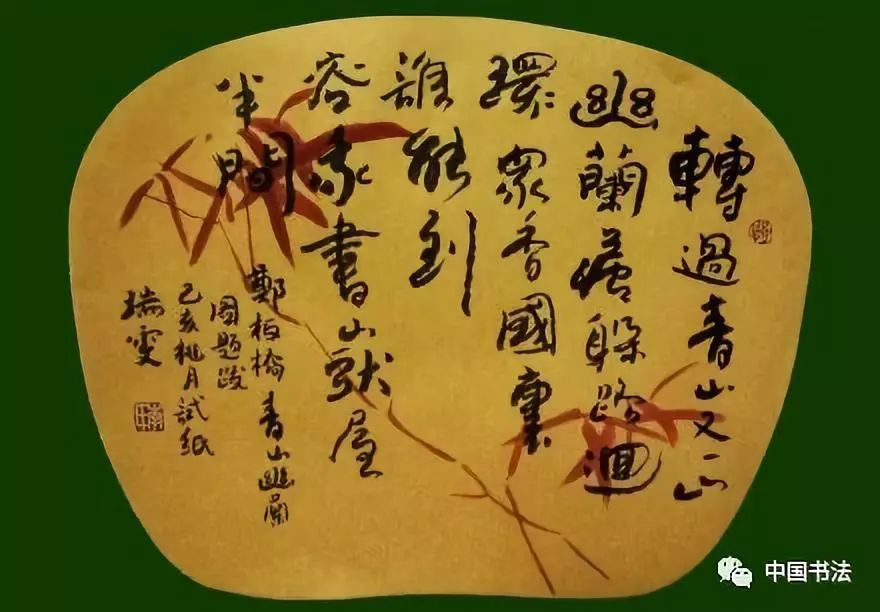 轉過青山又一山
幽蘭藏躲路迴
環眾香國裏
誰能到
容我書獃屋
半間
鄭板橋青山幽蘭
圖題跋
己亥桃月試紙
瑞雯
中国书法